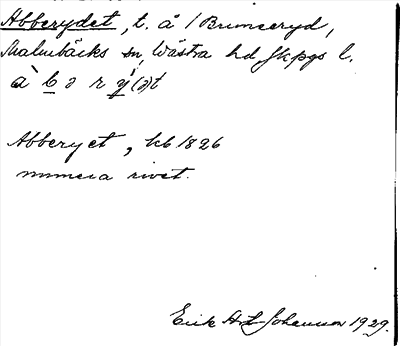 Abberydet, t. å /Bunneryd,
Malmbäcks sn, Västra hd Jkpgs l.
à b ə r ý (ə)t
Abberyet, kb 1826
numera rivet.
Erik Arth Johansson 1929.